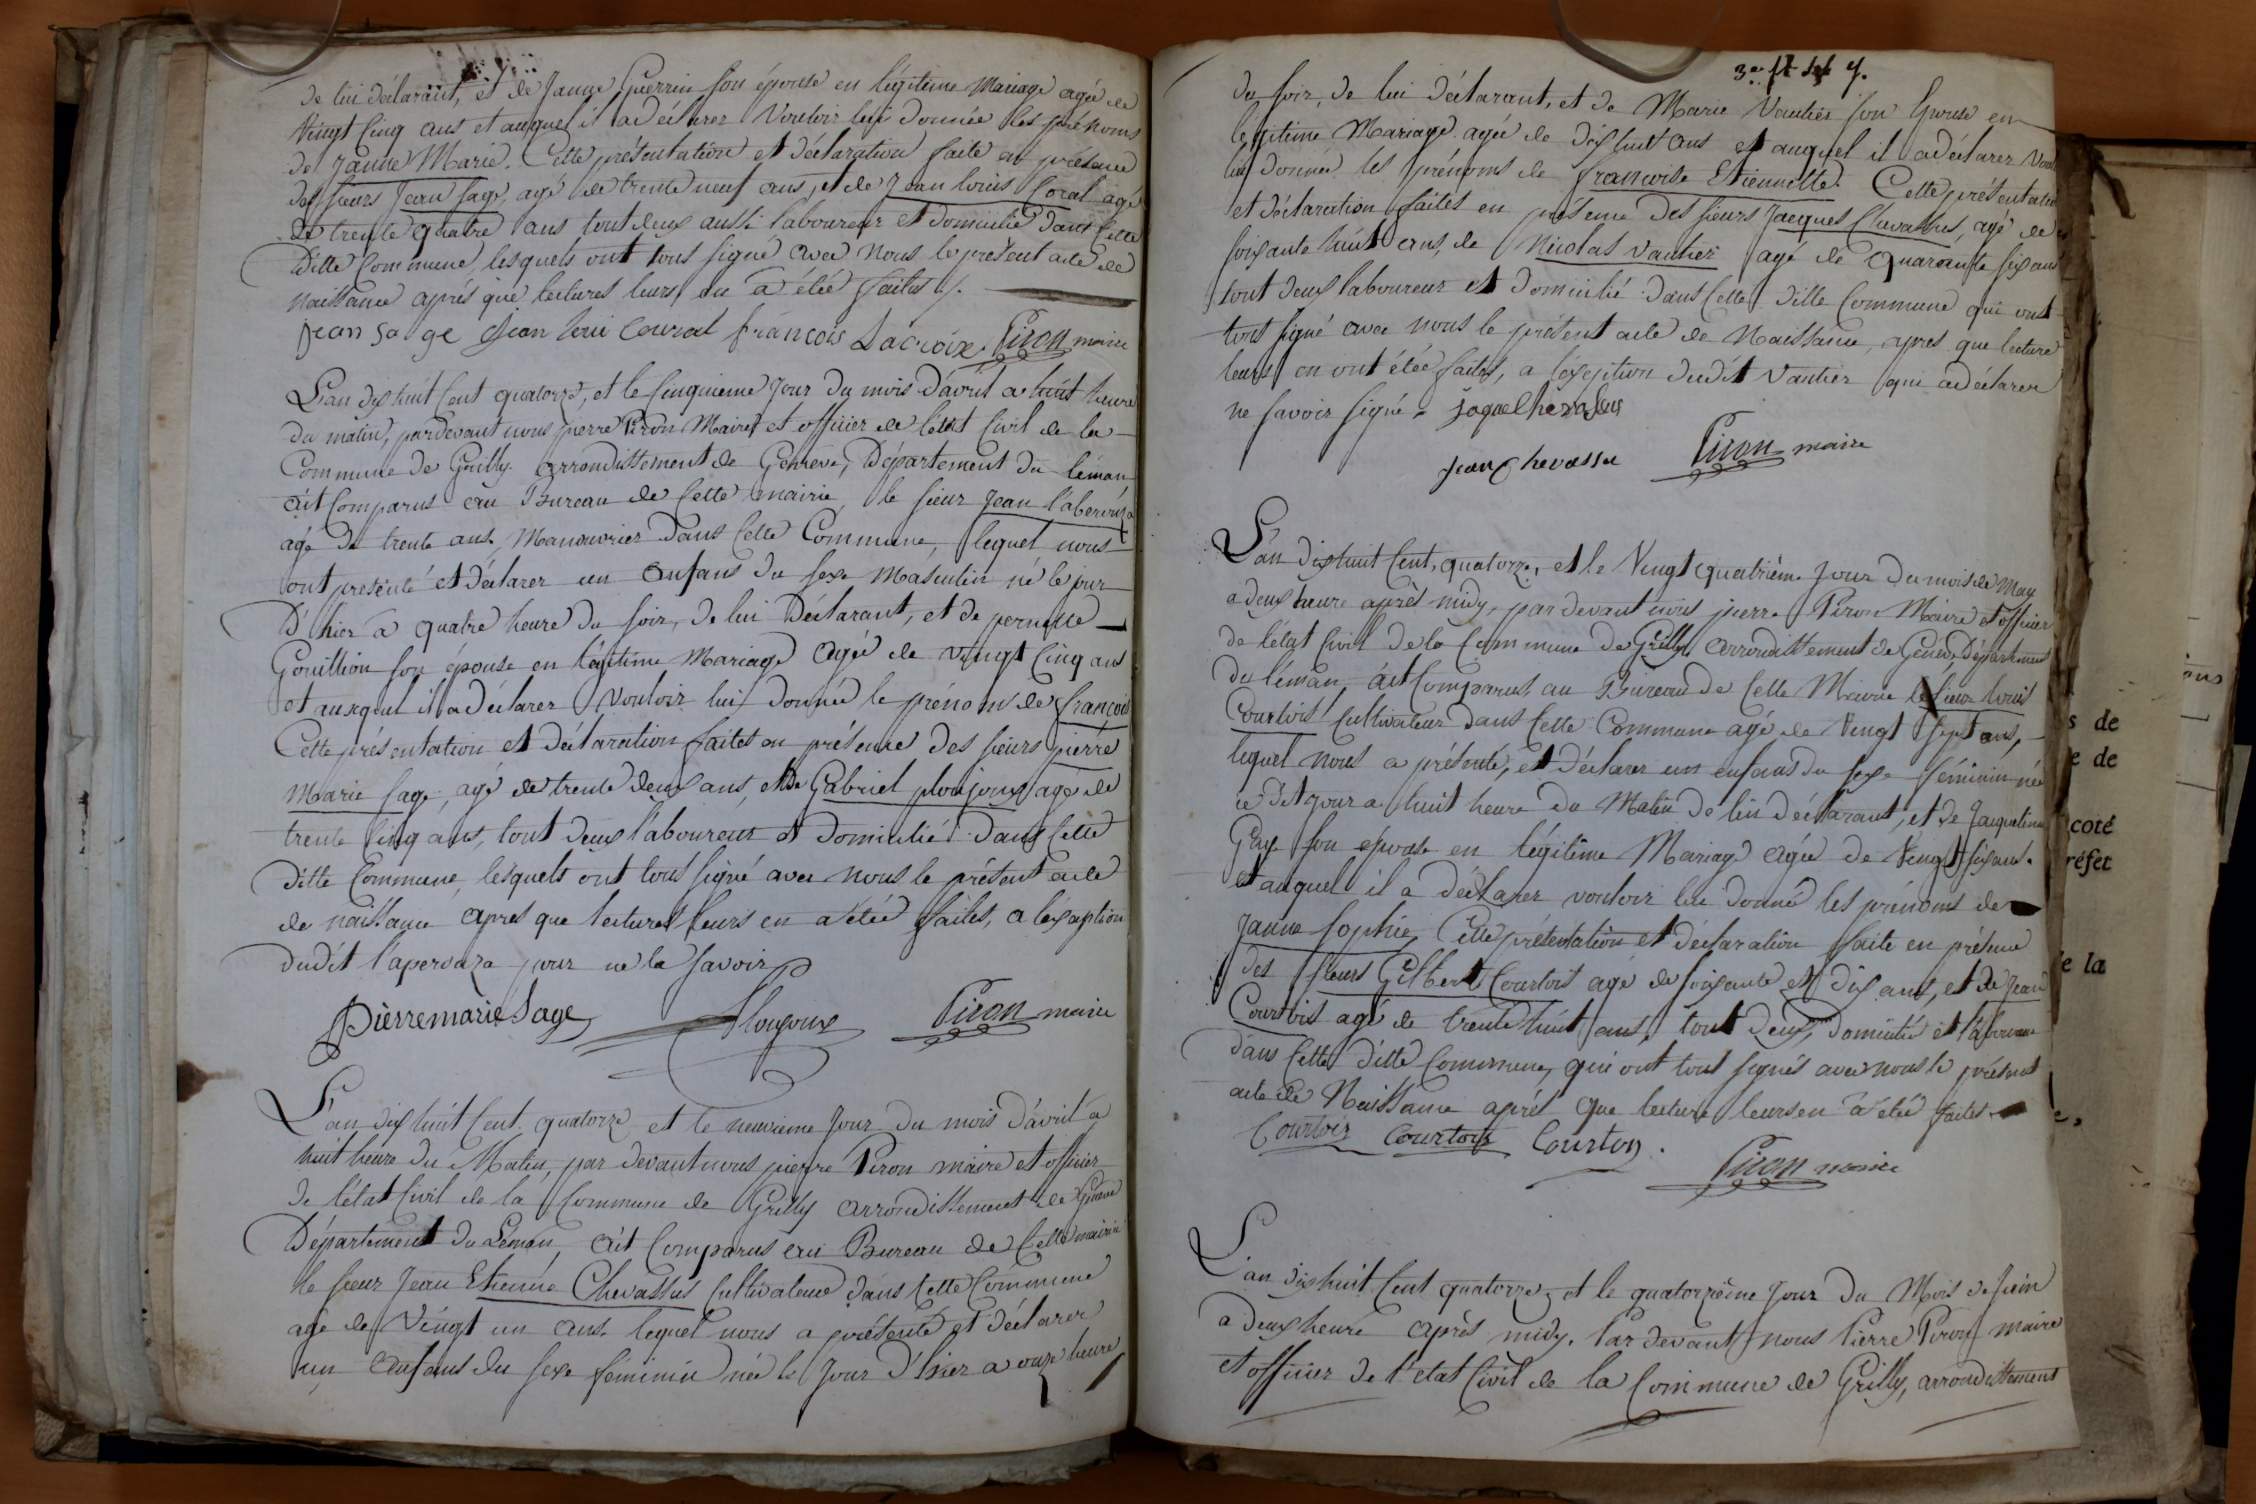 de lui déclarant, et de Janne Guerrin son épouse en légitime Mariage agée de
Vingt Cinq ans et auquel il a déclarer Vouloir lui donnée les prénoms
de Janne Marie. Cette présentation et déclaration faite en présence
des sieurs Jean Sage, agé de trente neuf ans, et de Jean louis Coral agé
de trente quatre ans tout deux aussi laboureur et domicilié dans Cette
Ditte Commune, lesquels ont tous signé avec nous le présent acte de
naissance après que lectures leurs en a étée faites ./.
jean sage Jean loui Courat françois Lacroix. Piron maire
L'an dix huit Cent quatorze, et le Cinquieme Jour du mois d'avril a huit heure
du matin, pardevant nous pierre Piron Maire et officier de l'état Civil de la
Commune de Grilly arrondissement de Genève, Département du léman
ait Comparus au Bureau de Cette mairie, le sieur Jean
agé de trente ans, Manouvrier dans Cette Commune, lequel nous
ont présenté et déclarer un enfans du sexe Masculin né le jour
D'hier a quatre heure du soir, de lui Déclarant, et de pernette
Gouillion son épouse en légitime Mariage agée de Vingt Cinq ans
et auxquel il a déclarer Vouloir lui donnée le prénoms de françois
Cette présentation et déclaration faites en présence des sieurs pierre
Marie Sage, agé de trente deux ans, et de Gabriel ploujoux agé de
trente Cinq ans, tout deux laboureur et Domicilié dans Cette
ditte Commune, lesquels ont tous signé avec nous le présent acte
de naissance apres que lectures leurs en a étée faites, a l'éxaption
dudit l'apervaza pour ne le savoir
Pierre marie Sage Ploujoux Piron maire
L'an dix huit Cent quatorze et le neuvieme Jour du mois d'avril a
huit heure du Matin, par devant nous pierre Piron maire et officier
de l'état Civil de la Commune de Grilly arrondissement de Genève
Département du Léman, ait Comparus au Bureau de Cette mairie
le sieur Jean Etienne Chevassus Cultivateur dans Cette Commune
agé de Vingt un ans, lequel nous a présenté et déclarer
un enfans du sexe féminin née le Jour d'hier a onze heure
du soir, de lui déclarant, et de Marie Vautier son Epouse en
légitime Mariage agée de dix huit ans et auquel il a déclarer
lui donnée les prénoms de francoise Etiennette. Cette présentation
et déclaration faites en présence des sieurs Jacques Chevassus, agé de
soixante huit ans, de Nicolas Vautier agé de Quarante six ans
tout deux laboureur et Domicilié dans Cette ditte Commune qui ont
tous signé avec nous le présent acte de Naissance, apres que lecture
leurs en ont étée faites, a l'éxeption dudit Vautier qui a déclarer
ne savoir signé.
jean Chevassu Piron maire
L'an dix huit Cent, quatorze, et le Vingt quatrième Jour du mois de May
a deux heure après midy, par devant nous pierre Piron Maire et officier
de l'état Civil de la Commune de Grilly arrondissement de Genève, Département
du léman, ait Comparus au Bureau de Cette Mairie le sieur Louis
Courtois Cultivateur dans Cette Commune agé de Vingt sept ans,
lequel nous a présenté, et déclarer un enfans du sexe féminin née
ce dit Jour a huit heure du Matin de lui déclarant, et de Jacqueline
Gay son épouse en légitime Mariage agée de Vingt six ans.
et auquel il a déclarer vouloir lui donné les prénoms de
Janne Sophie, Cette présentation et déclaration faite en présence
des sieurs Gilbert Courtois agé de soixante et dix ans, et de Jean
Courtois agé de trente huit ans, tout deux domicilié et laboureur
dans Cette ditte Commune, qui ont tous signés avec nous le présent
acte de Naissance après que lecture leurs en a étée faites
Courtois Courtois Courtois. Piron maire
L'an dix huit Cent quatorze, et le quatorzième Jour du Mois de Juin
a deux heure après midy. Par devant nous Pierre Piron maire
et officier de l'état Civil de la Commune de Grilly, arrondissement
s de
e de
coté
réfet
e la